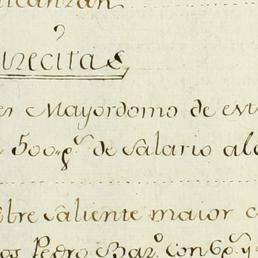 alcanzan
recitas
es Mayordomo de est
500 p.s de Salario al a
bre saliente maior c
os Pedro Baz.o con 6 p.s y